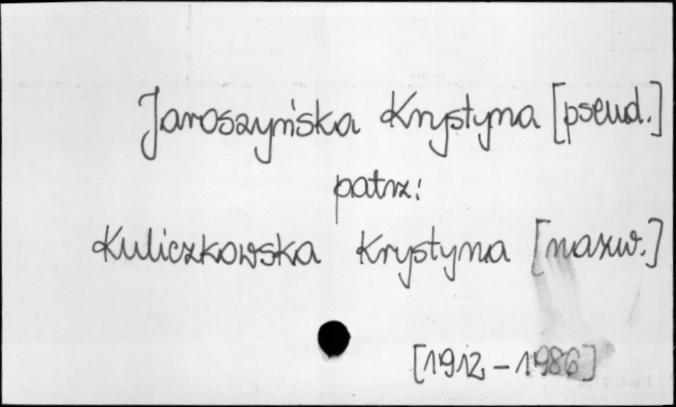 Jaroszyńska Krystyna [pseud.]
patrz:
Kuliczkowska Krystyna [nazw.]
[1912-1986]